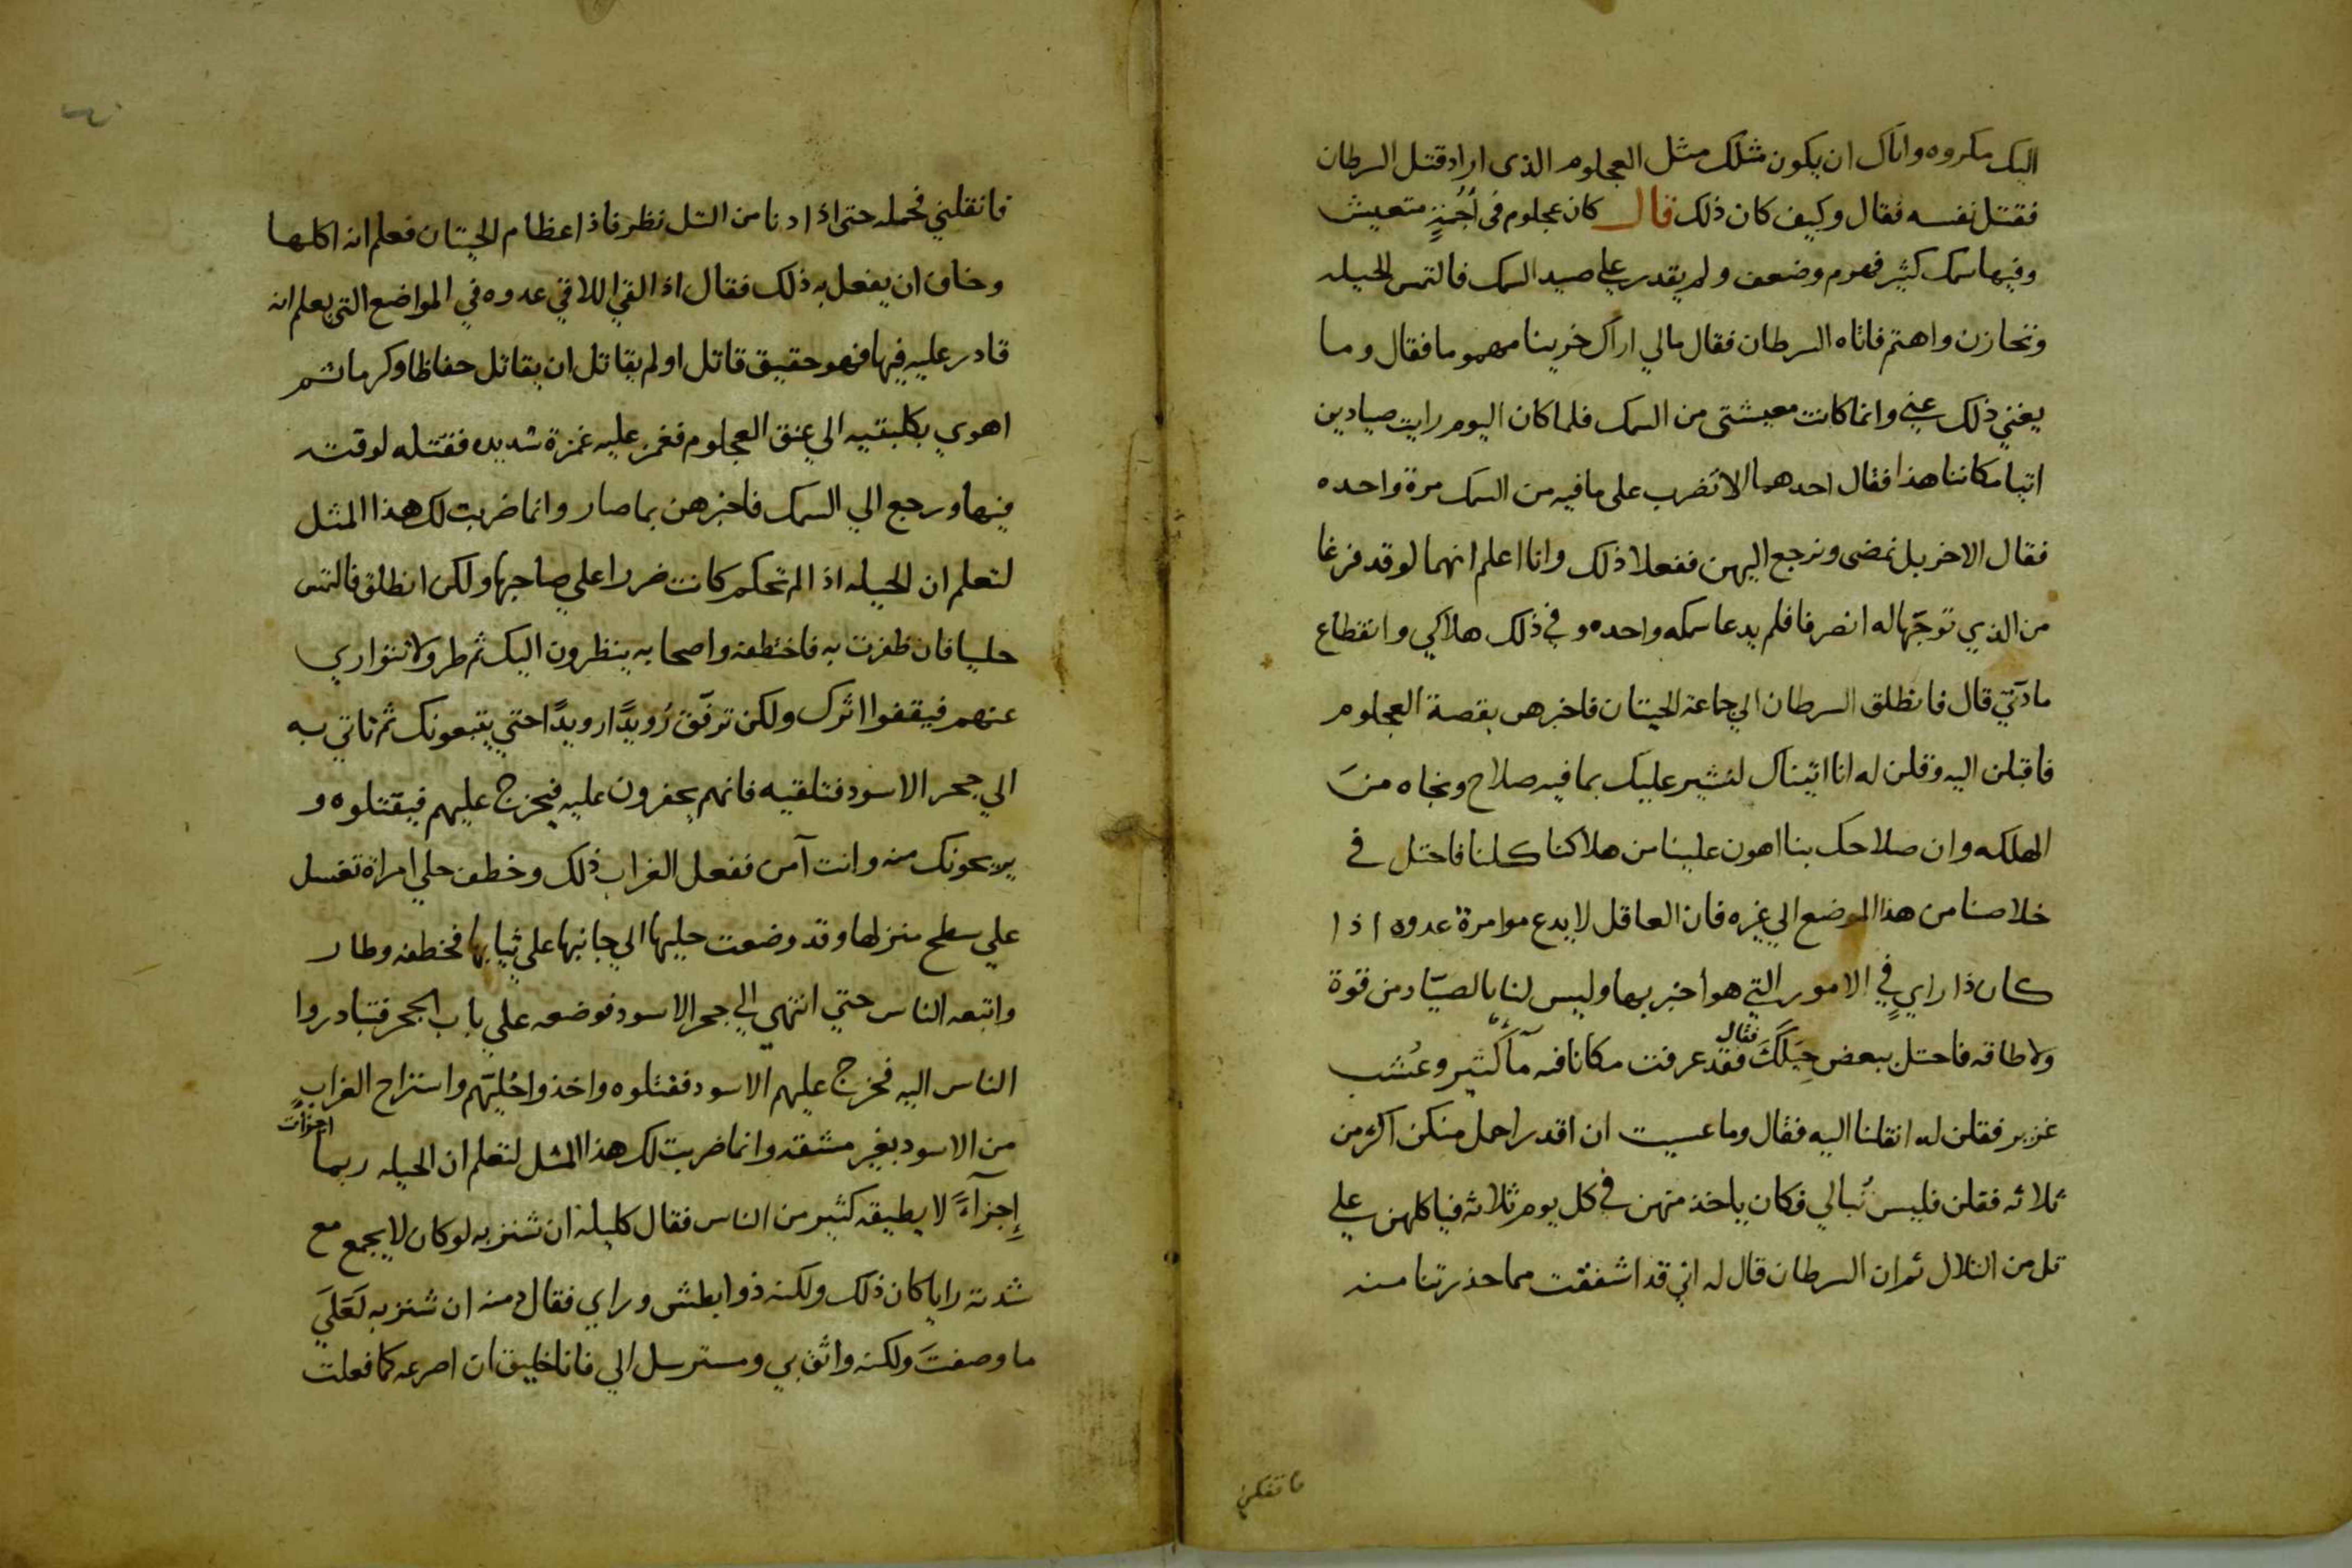 اليك مكروه واياك ان يكون مثلك مثل العجلوم الذى اراد قتل السرطان
فقتل نفسه فقال وكيف كان ذلك قال كان عجلوم فى أجُنةٍ متعيش
وفيها سمك كثير فهرم وضعف ولم يقدر علي صيد السمك فالتمس الحيله
وتحازن واهتم فاتاه السرطان فقال مالي اراك حزينا مهموما فقال وما
يغني ذلك عني وانما كانت معيشتى من السمك فلما كان اليوم رايت صيادين
اتيا مكاننا هذا فقال احدهما الا تضرب على ما فيه من السمك مرة واحده
فقال الاخر بل نمضى ونرجع اليهن ففعلا ذلك وانا اعلم انهما لو قد فرغا
من الذي توجّها له انصرفا فلم يدعا سمكه واحده وفي ذلك هلاكي وانقطاع
مادتي قال فانطلق السرطان الي جماعة الحيتان فاخبرهن بقصة العجلوم
فاقبلن اليه وقلن له انا اتيناك لتشير علينا بما فيه صلاح ونجاه منَ
الهلكه وان صلاحك بنا اهون علينا من هلاكنا كلنا فاحتل فى
خلاصنا من هذا الموضع الي غيره فان العاقل لا يدع موامرة عدوه اذا
كان ذا رايٍ في الامور التي هو اخبر بها وليس لنا بالصيّاد من قوة
ولا طاقه فاحتل ببعض حِيَلَكَ فقال فقد عرفت مكانا فيه مآكثير وعُشب
غزير فقلن له انقلنا اليه فقال وما عسيت ان اقدر احمل منكن اكثر من
ثلاثه فقلن فليس نُبالي فكان ياخذ منهن في كل يوم ثلاثه فياكلهن علي
تل من التلال ثم ان السرطان قال له اني قد اشفقت مما حذرتنا منه
فانقلني فحمله حتى اذا دنا من التل نظر فاذا عظام الحيتان فعلم انه اكلها
وخاف ان يفعل به ذلك فقال اذا القي اللاقي عدوه في المواضع التي يعلم انه
قادر عليه فيها فهو حقيق قاتل او لم يقاتل ان يقاتل حفاظا وكرما ثم
اهوي بكلبتيه الي عنق العجلوم فغمز عليه غمزة شديده فقتله لوقته
فيها ورجع الي السمك فاخبرهن بما صار وانما ضربت لك هذا المثل
لتعلم ان الحيله اذا لم تحكم كانت ضررا علي صاحبها ولكن انطلق فالتمس
حليا فان ظفرت به فاختطفه واصحابه ينظرون اليك ثم طر ولا تتواري
عنهم فيقفوا اثرك ولكن ترفّق رُويدًا رويدًا حتي يتبعونك ثم تاتي به
الي جحر الاسود فتلقيه فانهم يحفرون عليه فيخرج عليهم فيقتلوه و
يريحونك منه وانت آمن ففعل الغراب ذلك وخطف حلي امراة تغسل
علي سطح منزلها وقد وضعت حليها الي جانبها علي ثيابها فخطفه وطار
واتبعه الناس حتي انتهي الي جحر الاسود فوضعه علي باب الجحر فتبادروا
الناس اليه فخرج عليهم الاسود فقتلوه واخذوا حُليّهم واستراح الغراب
من الاسود بغير مشقه وانما ضربت لك هذا المثل لتعلم ان الحيله ربما اجزات
إجزآءً لا يطيقه كثير من الناس فقال كليله ان شنزبه لو كان لا يجمع مع
شدته رايا كان ذلك ولكنه ذوا بطش وراي فقال دمنه ان شنزبه لَعَليَ
ما وصفتَ ولكنه واثق بي ومسترسل الي فانا خليق ان اصرعه كما فعلت